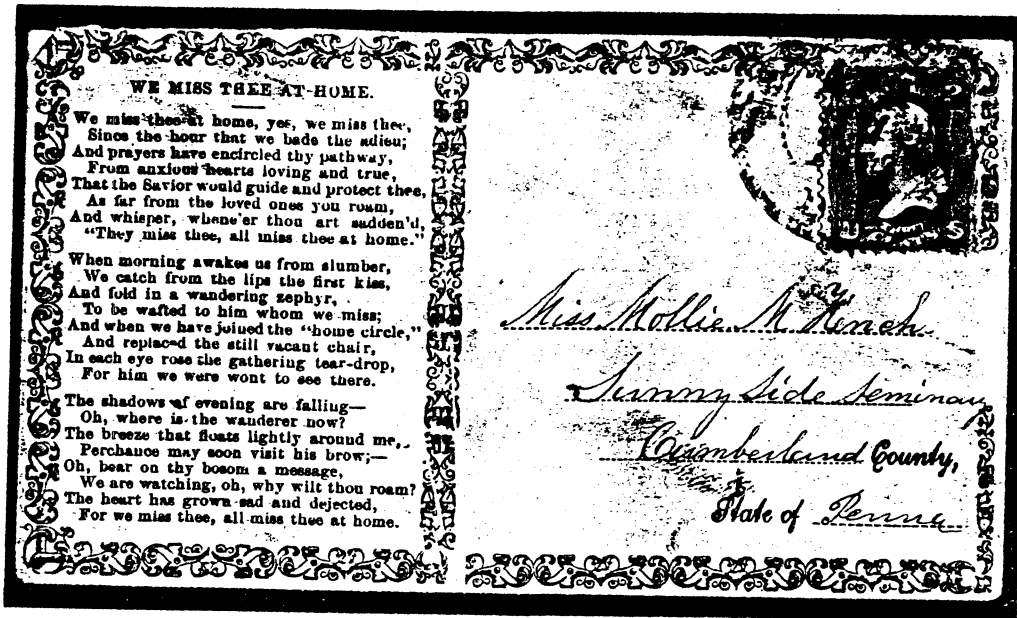 WE MISS THEE AT HOME.
We miss thee at home, yes, we miss thee,
Since the hour that we bade the adieu;
And prayers have encircled thy pathway,
From anxious hearts loving and true,
That the Savior would guide and protect thee,
As far from the loved ones you roam,
And whisper, whene'er thou art sadden'd,
"They miss thee, all miss thee at home."
When morning awakes us from slumber,
We catch from the lips the first kiss,
And fold in a wandering zephyr,
To be wafted to him whom we miss;
And when we have joined the "home circle,"
And replaced the still vacant chair,
In each eye rose the gathering tear-drop,
For him we were wont to see there.
The shadows of evening are falling—
Oh, where is the wanderer now?
The breeze that floats lightly around me,
Perchance may soon visit his brow;—
Oh, bear on thy bosom a message,
We are watching, oh, why wilt thou roam?
The heart has grown sad and dejected,
For we miss thee, all miss thee at home.
U S
Miss Mollie M
Sunny Side Seminary
Cumberland County,
State of Penna